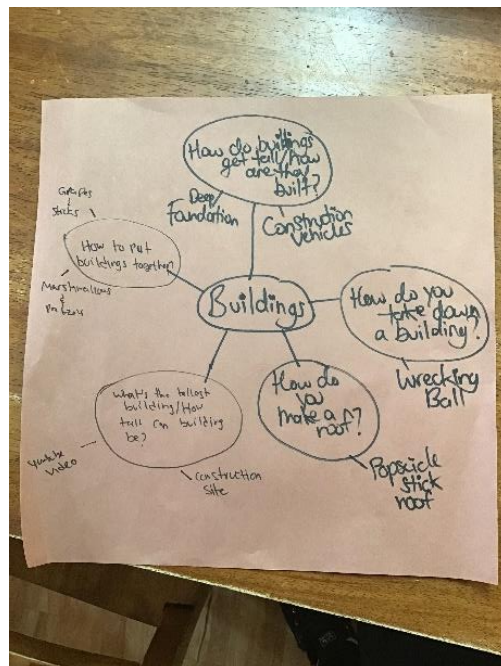 How do buildings
get tall/how
are they
built?
Deep
Foundation
Construction
Vehicles
Sticks
How to put
buildings together
Marshmallows
Buildings
How do you
take down
a building?
Wrecking
Ball
How do
you
make a
roof?
Popsicle
stick
roof
What's the tallest
building/How
tall can building
be?
Youtube
video
Construction
Site